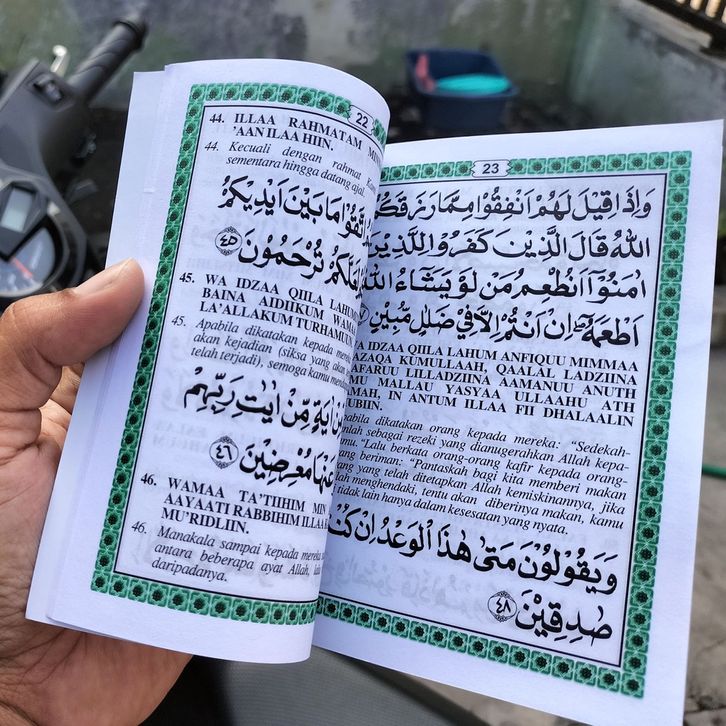 22
44. ILLAA RAHMATAM MIN
'AAN ILAA HIIN.
44. Kecuali dengan rahmat Kami
sementara hingga datang ajal.
اتَّقُوْا مَا بَيْنَ اَيْدِيْكُمْ
لَعَلَّكُمْ تُرْحَمُوْنَ ٤٥
45. WA IDZAA QIILA LAHUM
BAINA AIDIIKUM WAMAA
LA'ALLAKUM TURHAMUUN
45. Apabila dikatakan kepada mereka
akan kejadian (siksa yang akan
telah terjadi), semoga kamu
مِّنْ اٰيَةٍ مِّنْ اٰيٰتِ رَبِّهِمْ
عَنْهَا مُعْرِضِيْنَ ٤٦
46. WAMAA TA'TIIHIM MIN
AAYAATI RABBIHIM ILLAA
MU'RIDLIIN.
46. Manakala sampai kepada mereka
antara beberapa ayat Allah,
daripadanya.
23
وَاِذَا قِيْلَ لَهُمْ اَنْفِقُوْا مِمَّا رَزَقَكُمُ
اللهُ قَالَ الَّذِيْنَ كَفَرُوْا لِلَّذِيْنَ
اٰمَنُوْٓا اَنُطْعِمُ مَنْ لَّوْ يَشَآءُ اللهُ
اَطْعَمَهٗٓ اِنْ اَنْتُمْ اِلَّا فِيْ ضَلٰلٍ مُّبِيْنٍ
IDZAA QIILA LAHUM ANFIQUU MIMMAA
AZAQA KUMULLAAH, QAALAL LADZIINA
AFARUU LILLADZIINA AAMANUU ANUTH
MU MALLAU YASYAA ULLAAHU ATH
AMAH, IN ANTUM ILLAA FII DHALAALIN
UBIIN.
abila dikatakan orang kepada mereka: "Sedekah-
lah sebagai rezeki yang dianugerahkan Allah kepa-
". Lalu berkata orang-orang kafir kepada orang-
beriman: "Pantaskah bagi kita memberi makan
yang telah ditetapkan Allah kemiskinannya, jika
ah menghendaki, tentu akan diberinya makan, kamu
tidak lain hanya dalam kesesatan yang nyata.
وَيَقُوْلُوْنَ مَتٰى هٰذَا الْوَعْدُ اِنْ كُنْتُمْ
صٰدِقِيْنَ ٤٨